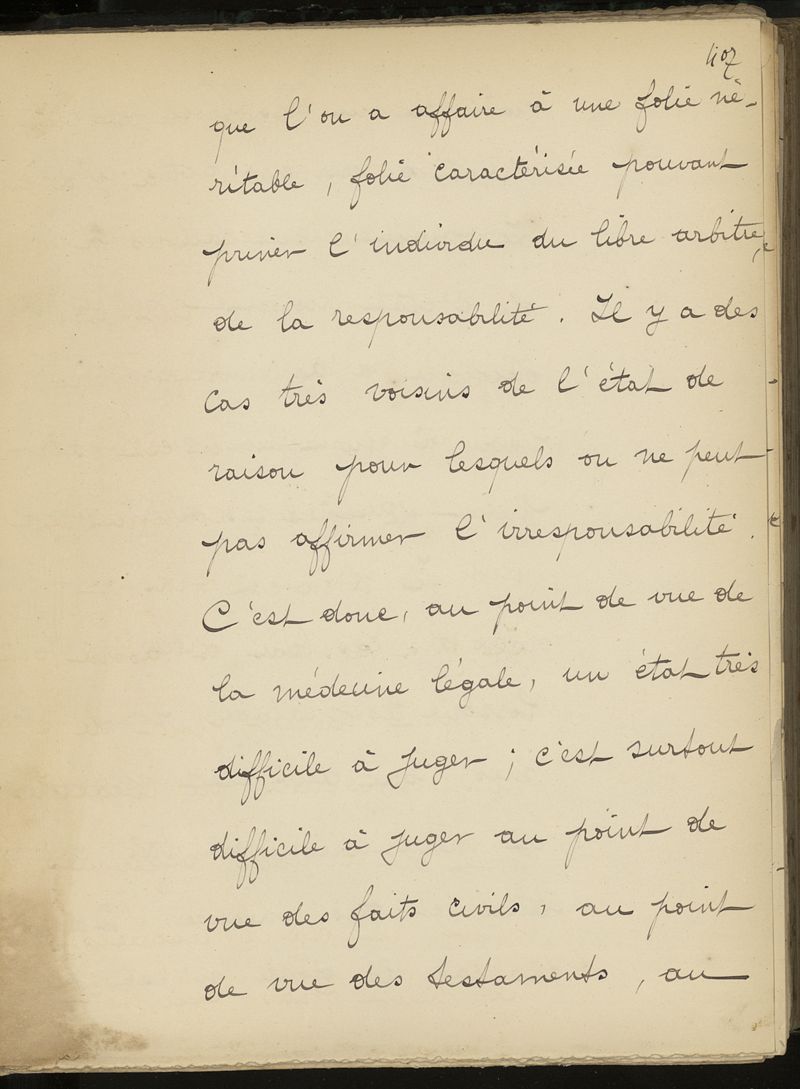 407
que l'on a affaire à une folie vé-
ritable, folie caractérisée pouvant
priver l'indivdu du libre arbitre,
de la responsabilité. Il y a des
cas très voisins de l'état de
raison pour lesquels on ne peut
pas affirmer l'irresponsabilité.
C'est donc, au point de vue de
la médecine légale, un état très
difficile à juger ; c'est surtout
difficile à juger au point de
vue des faits civils, au point
de vue des testaments, au